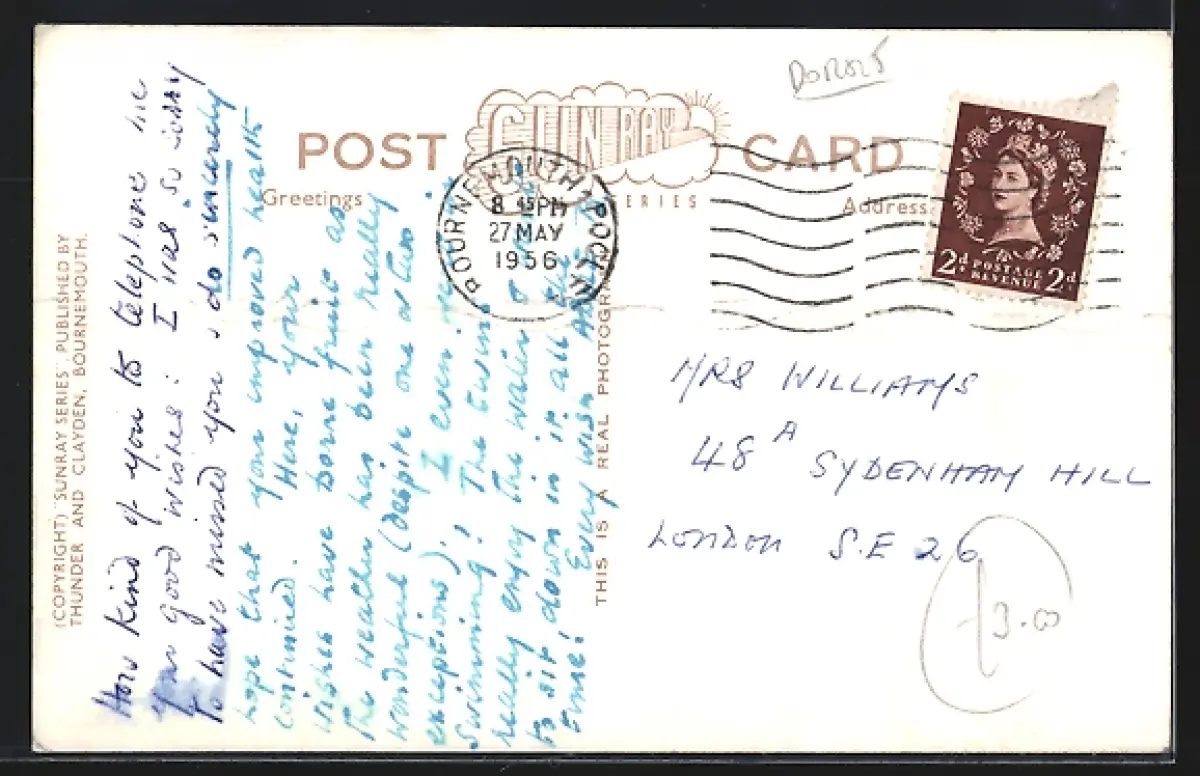 DORSET
POST CARD
SUNRAY
SERIES
Greetings
Address
BOURNEMOUTH POOLE
8 15 PM
27 MAY
1956
2d POSTAGE REVENUE 2d
(COPYRIGHT) "SUNRAY SERIES", PUBLISHED BY
THUNDER AND CLAYDEN, BOURNEMOUTH.
How kind of you to telephone me
your good wishes: I was so sorry
to have missed you & do sincerely
hope that your improved health
continued. Here, your
wishes have borne fruit as
the weather has been really
wonderful (despite one or two
exceptions). I even
swimming! The twins
really enjoy the water &
to sit down in it all the
time! Every wish
THIS IS A REAL PHOTOGRAPH
MRS WILLIAMS
48A SYDENHAM HILL
LONDON S.E 26
£3.00